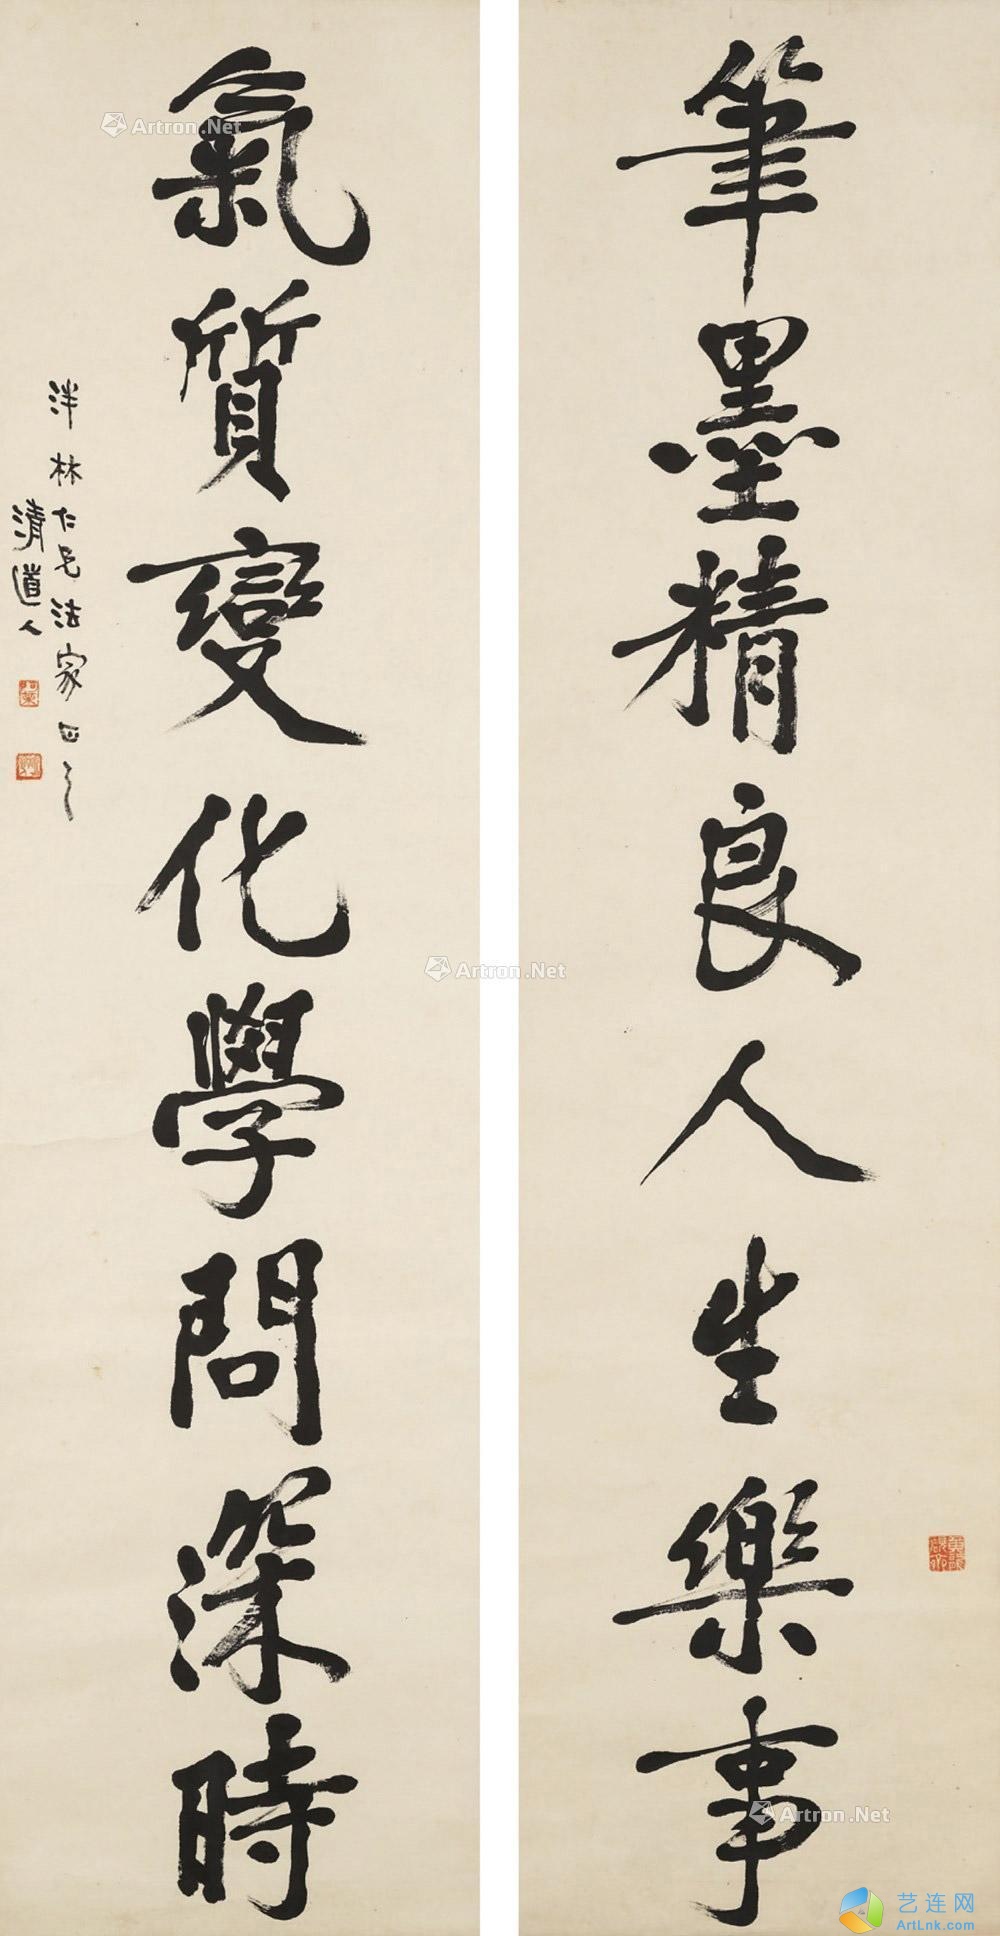 筆墨精良人生樂事
氣質變化學問深時
泮林仁兄法家正之
清道人
Artron.Net
Artron.Net
Artron.Net
艺连网
ArtLnk.com